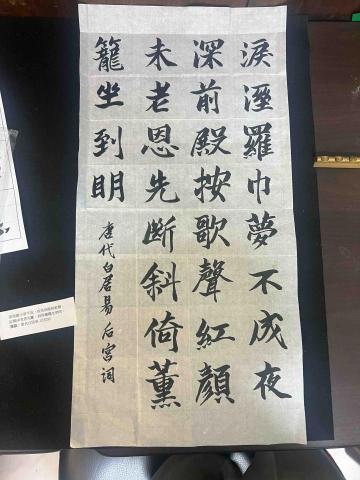 淚溼羅巾夢不成夜
深前殿按歌聲紅顏
未老恩先斷斜倚薰
籠坐到明
唐代白居易后宮詞